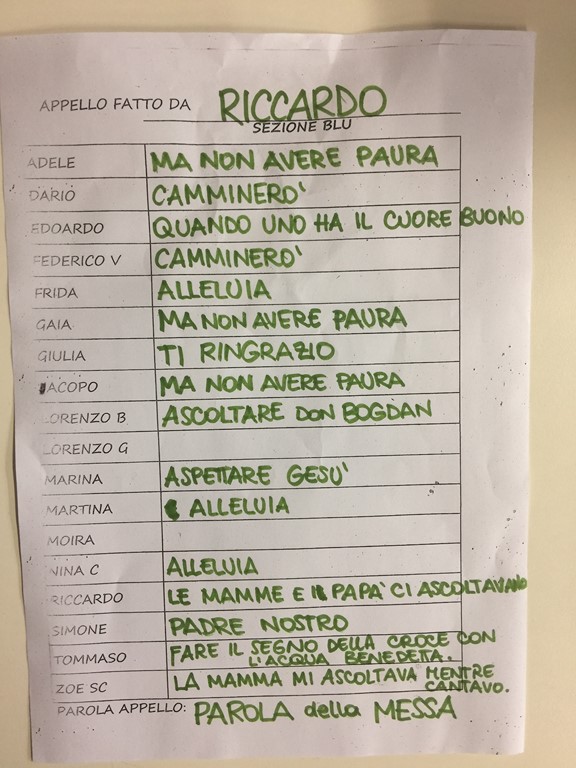 APPELLO FATTO DA RICCARDO
SEZIONE BLU
ADELE MA NON AVERE PAURA
DARIO CAMMINERO'
EDOARDO QUANDO UNO HA IL CUORE BUONO
FEDERICO V CAMMINERO'
FRIDA ALLELUIA
GAIA MA NON AVERE PAURA
GIULIA TI RINGRAZIO
JACOPO MA NON AVERE PAURA
LORENZO B ASCOLTARE DON BOGDAN
LORENZO G
MARINA ASPETTARE GESU'
MARTINA ALLELUIA
MOIRA
NINA C ALLELUIA
RICCARDO LE MAMME E IL PAPA' CI ASCOLTAVANO
SIMONE PADRE NOSTRO
TOMMASO FARE IL SEGNO DELLA CROCE CON
L'ACQUA BENEDETA.
ZOE SC LA MAMMA MI ASCOLTAVA MENTRE
CANTAVO.
PAROLA APPELLO: PAROLA della MESSA